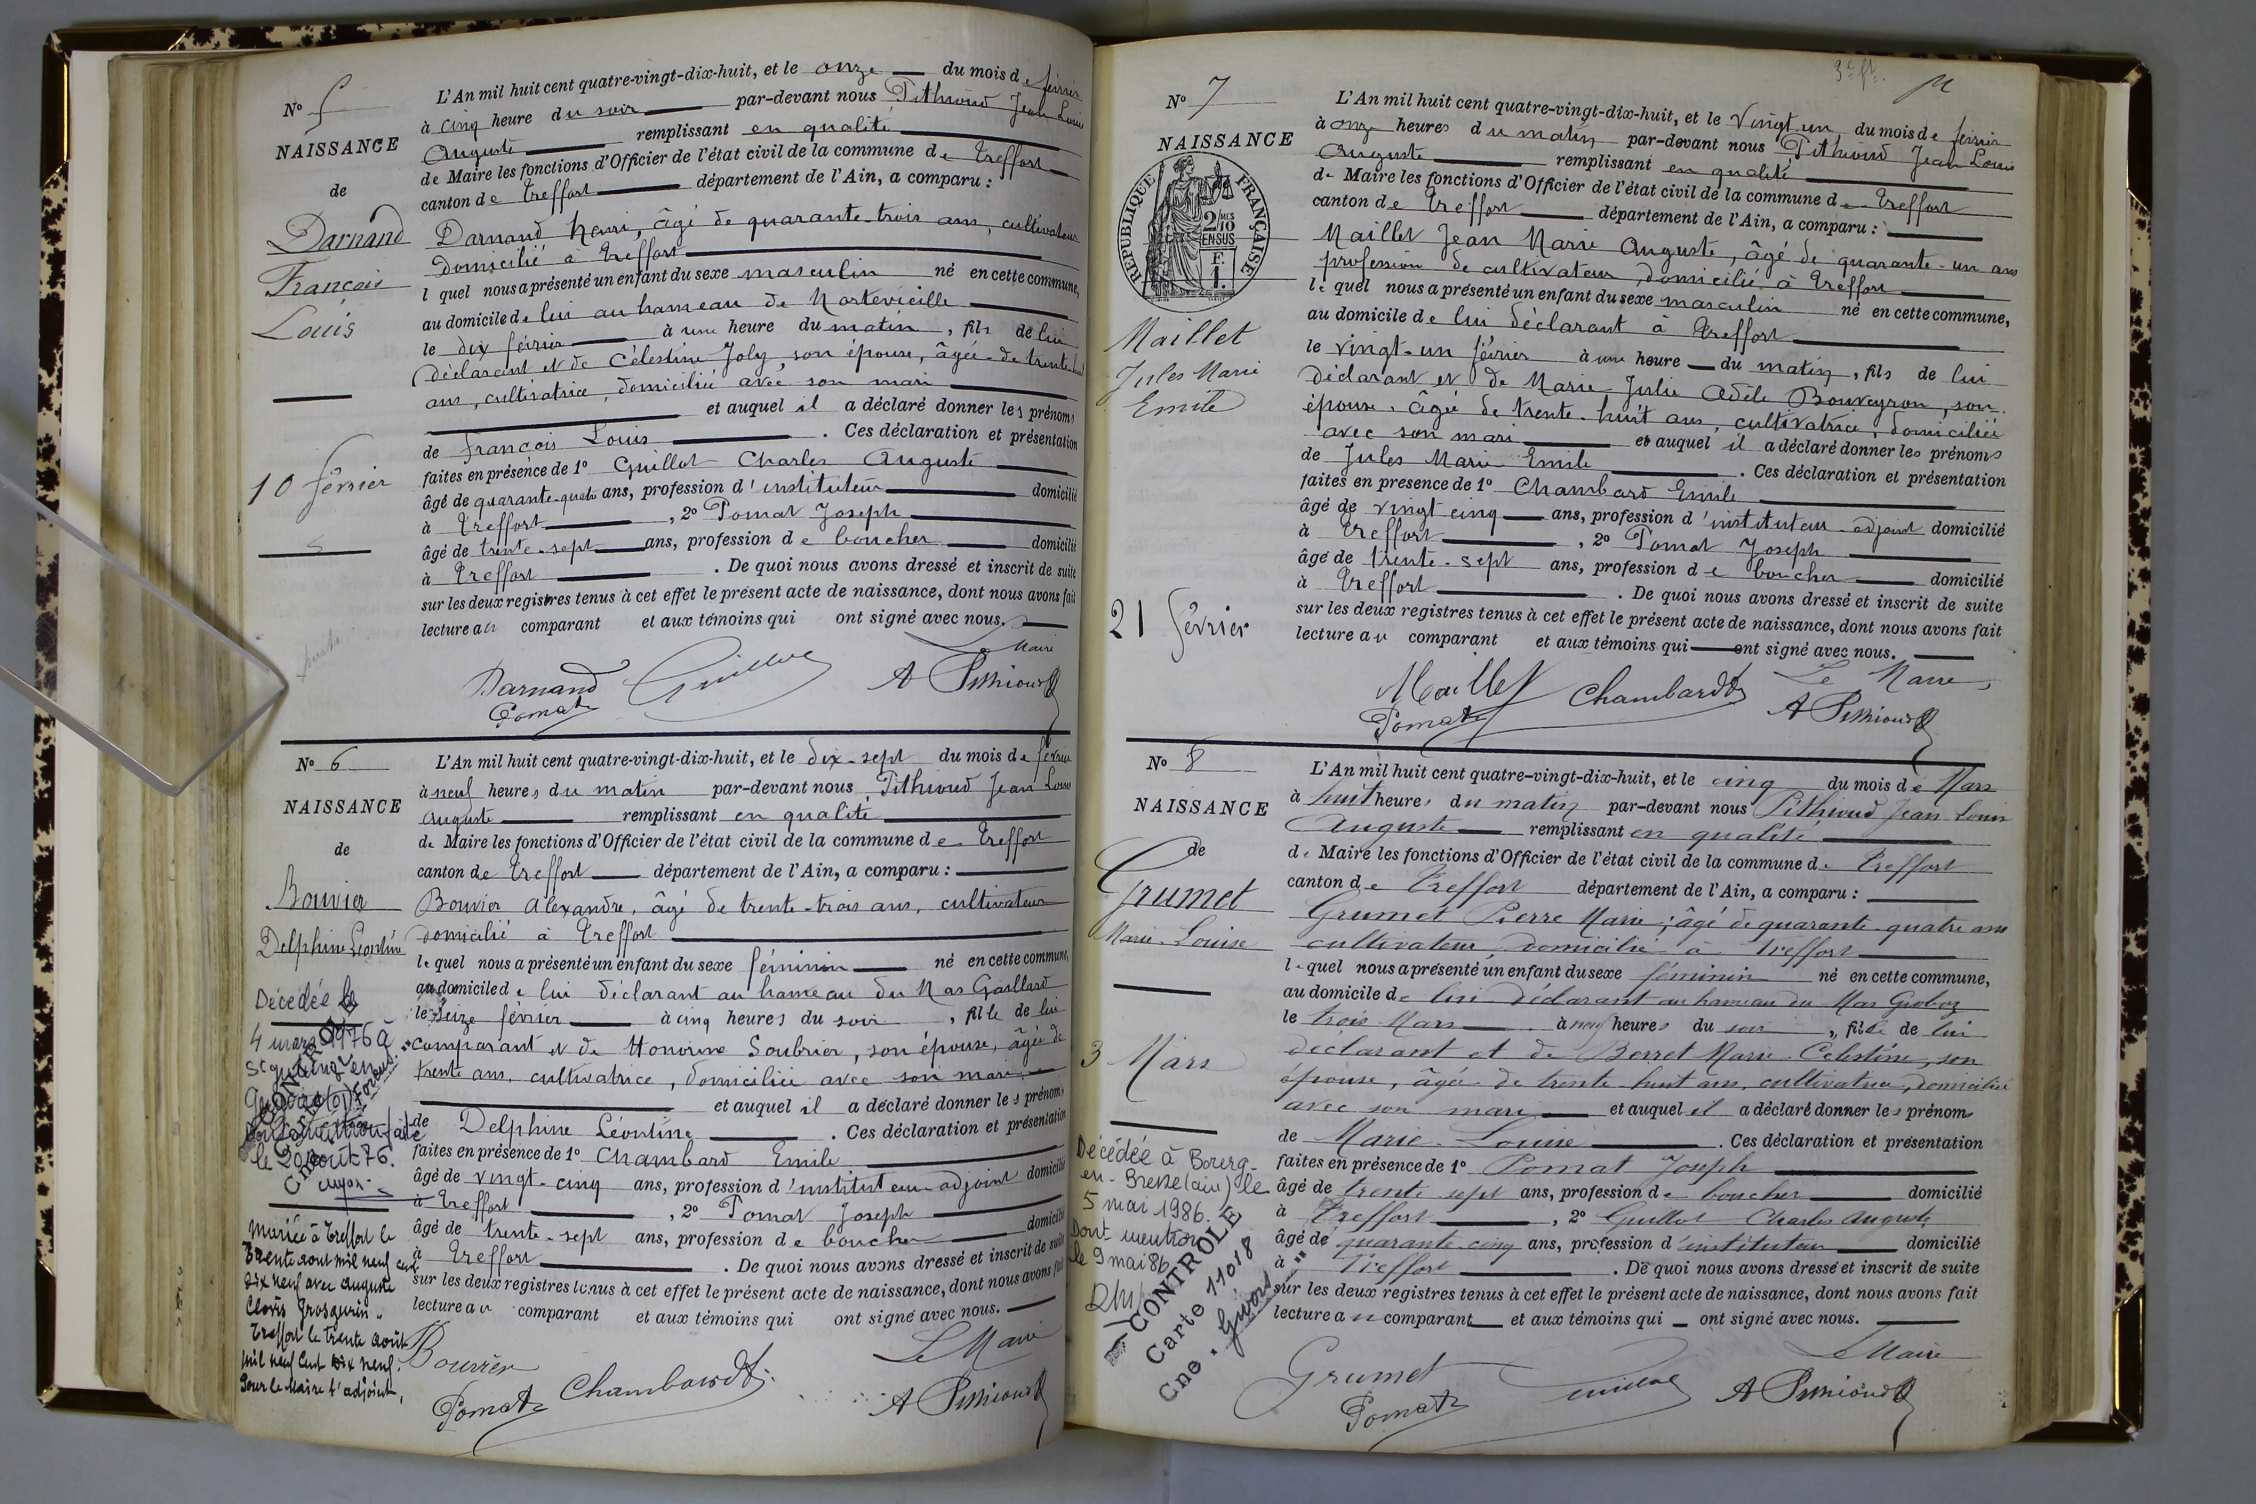 N° 5
NAISSANCE
de
Darnand
François
Louis
10 février
L'An mil huit cent quatre-vingt-dix-huit, et le onze du mois de février
à cinq heure du soir par-devant nous Pithioud Jean Louis
Auguste remplissant en qualité
de Maire les fonctions d'Officier de l'état civil de la commune de Treffort
canton de Treffort département de l'Ain, a comparu :
Darnand Henri, âgé de quarante-trois ans, cultivateur
domicilié à Treffort
lequel nous a présenté un enfant du sexe masculin né en cette commune,
au domicile de lui au hameau de Mortevieille
le dix février à une heure du matin, fils de lui
déclarant et de Célestine Joly, son épouse, âgée de trente
ans, cultivatrice, domiciliée avec son mari
et auquel il a déclaré donner les prénoms
de François Louis. Ces déclaration et présentation
faites en présence de 1° Guillot Charles Auguste
âgé de quarante-quatre ans, profession d'instituteur domicilié
à Treffort, 2° Pomat Joseph
âgé de trente-sept ans, profession de boucher domicilié
à Treffort. De quoi nous avons dressé et inscrit de suite
sur les deux registres tenus à cet effet le présent acte de naissance, dont nous avons fait
lecture au comparant et aux témoins qui ont signé avec nous.
Le Maire
Darnand Guillot A Pithioud
Pomat
N° 6
NAISSANCE
de
Bouvier
Delphine Léontine
Décédée le
4 mars 1976 à
dont mention faite
le 20 août 76.
CONTROLE
Mariée à Treffort le
trente août mil neuf cent
dix neuf avec Auguste
Clovis Grosgurin.
Treffort le trente août
mil neuf cent dix neuf.
Pour le Maire l'adjoint,
L'An mil huit cent quatre-vingt-dix-huit, et le dix-sept du mois de février
à neuf heures du matin par-devant nous Pithioud Jean Louis
Auguste remplissant en qualité
de Maire les fonctions d'Officier de l'état civil de la commune de Treffort
canton de Treffort département de l'Ain, a comparu :
Bouvier Alexandre, âgé de trente-trois ans, cultivateur
domicilié à Treffort
lequel nous a présenté un enfant du sexe féminin né en cette commune,
au domicile de lui déclarant au hameau du Mas Gaillard
le seize février à cinq heures du soir, fille de lui
comparant et de Honorine Soubrier, son épouse, âgée de
trente ans, cultivatrice, domiciliée avec son mari
et auquel il a déclaré donner les prénoms
de Delphine Léontine. Ces déclaration et présentation
faites en présence de 1° Chambard Emile
âgé de vingt-cinq ans, profession d'instituteur adjoint domicilié
à Treffort, 2° Pomat Joseph
âgé de trente-sept ans, profession de boucher domicilié
à Treffort. De quoi nous avons dressé et inscrit de suite
sur les deux registres tenus à cet effet le présent acte de naissance, dont nous avons fait
lecture au comparant et aux témoins qui ont signé avec nous.
Bouvier Le Maire
Pomat Chambard A Pithioud
N° 7
NAISSANCE
RÉPUBLIQUE FRANÇAISE
2/10 MES
EN SUS
F.
1.
Maillet
Jules Marie
Emile
21 février
L'An mil huit cent quatre-vingt-dix-huit, et le vingt-un du mois de février
à onze heures du matin par-devant nous Pithioud Jean Louis
Auguste remplissant en qualité
de Maire les fonctions d'Officier de l'état civil de la commune de Treffort
canton de Treffort département de l'Ain, a comparu :
Maillet Jean Marie Auguste, âgé de quarante-un ans
profession de cultivateur, domicilié à Treffort
lequel nous a présenté un enfant du sexe masculin né en cette commune,
au domicile de lui déclarant à Treffort
le vingt-un février à une heure du matin, fils de lui
déclarant et de Marie Julie Adèle Bouveyron, son
épouse, âgée de trente-huit ans, cultivatrice, domiciliée
avec son mari et auquel il a déclaré donner les prénoms
de Jules Marie Emile. Ces déclaration et présentation
faites en présence de 1° Chambard Emile
âgé de vingt cinq ans, profession d'instituteur-adjoint domicilié
à Treffort, 2° Pomat Joseph
âgé de trente-sept ans, profession de boucher domicilié
à Treffort. De quoi nous avons dressé et inscrit de suite
sur les deux registres tenus à cet effet le présent acte de naissance, dont nous avons fait
lecture au comparant et aux témoins qui ont signé avec nous.
Maillet Chambard Le Maire,
Pomat A Pithioud
N° 8
NAISSANCE
de
Grumet
Marie-Louise
3 Mars
Décédée à Bourg-
en-Bresse (ain) le
5 mai 1986.
Dont mention
le 9 mai 86
CONTROLE
Carte 11018
Cne. Givors
L'An mil huit cent quatre-vingt-dix-huit, et le cinq du mois de Mars
à huit heures du matin par-devant nous Pithioud Jean Louis
Auguste remplissant en qualité
de Maire les fonctions d'Officier de l'état civil de la commune de Treffort
canton de Treffort département de l'Ain, a comparu :
Grumet Pierre Marie, âgé de quarante-quatre ans
cultivateur, domicilié à Treffort
lequel nous a présenté un enfant du sexe féminin né en cette commune,
au domicile de lui déclarant au hameau du Mas Groboz
le trois Mars à neuf heures du soir, fille de lui
déclarant et de Berret Marie-Célestine, son
épouse, âgée de trente-huit ans, cultivatrice, domiciliée
avec son mari et auquel il a déclaré donner les prénoms
de Marie-Louise. Ces déclaration et présentation
faites en présence de 1° Pomat Joseph
âgé de trente-sept ans, profession de boucher domicilié
à Treffort, 2° Guillot Charles Auguste
âgé de quarante-cinq ans, profession d'instituteur domicilié
à Treffort. De quoi nous avons dressé et inscrit de suite
sur les deux registres tenus à cet effet le présent acte de naissance, dont nous avons fait
lecture au comparant et aux témoins qui ont signé avec nous.
Grumet Le Maire
Pomat Guillot A Pithioud